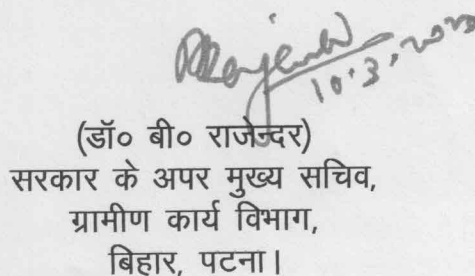 BRajender
10.3.2023
(डॉ० बी० राजेन्दर)
सरकार के अपर मुख्य सचिव,
ग्रामीण कार्य विभाग,
बिहार, पटना।